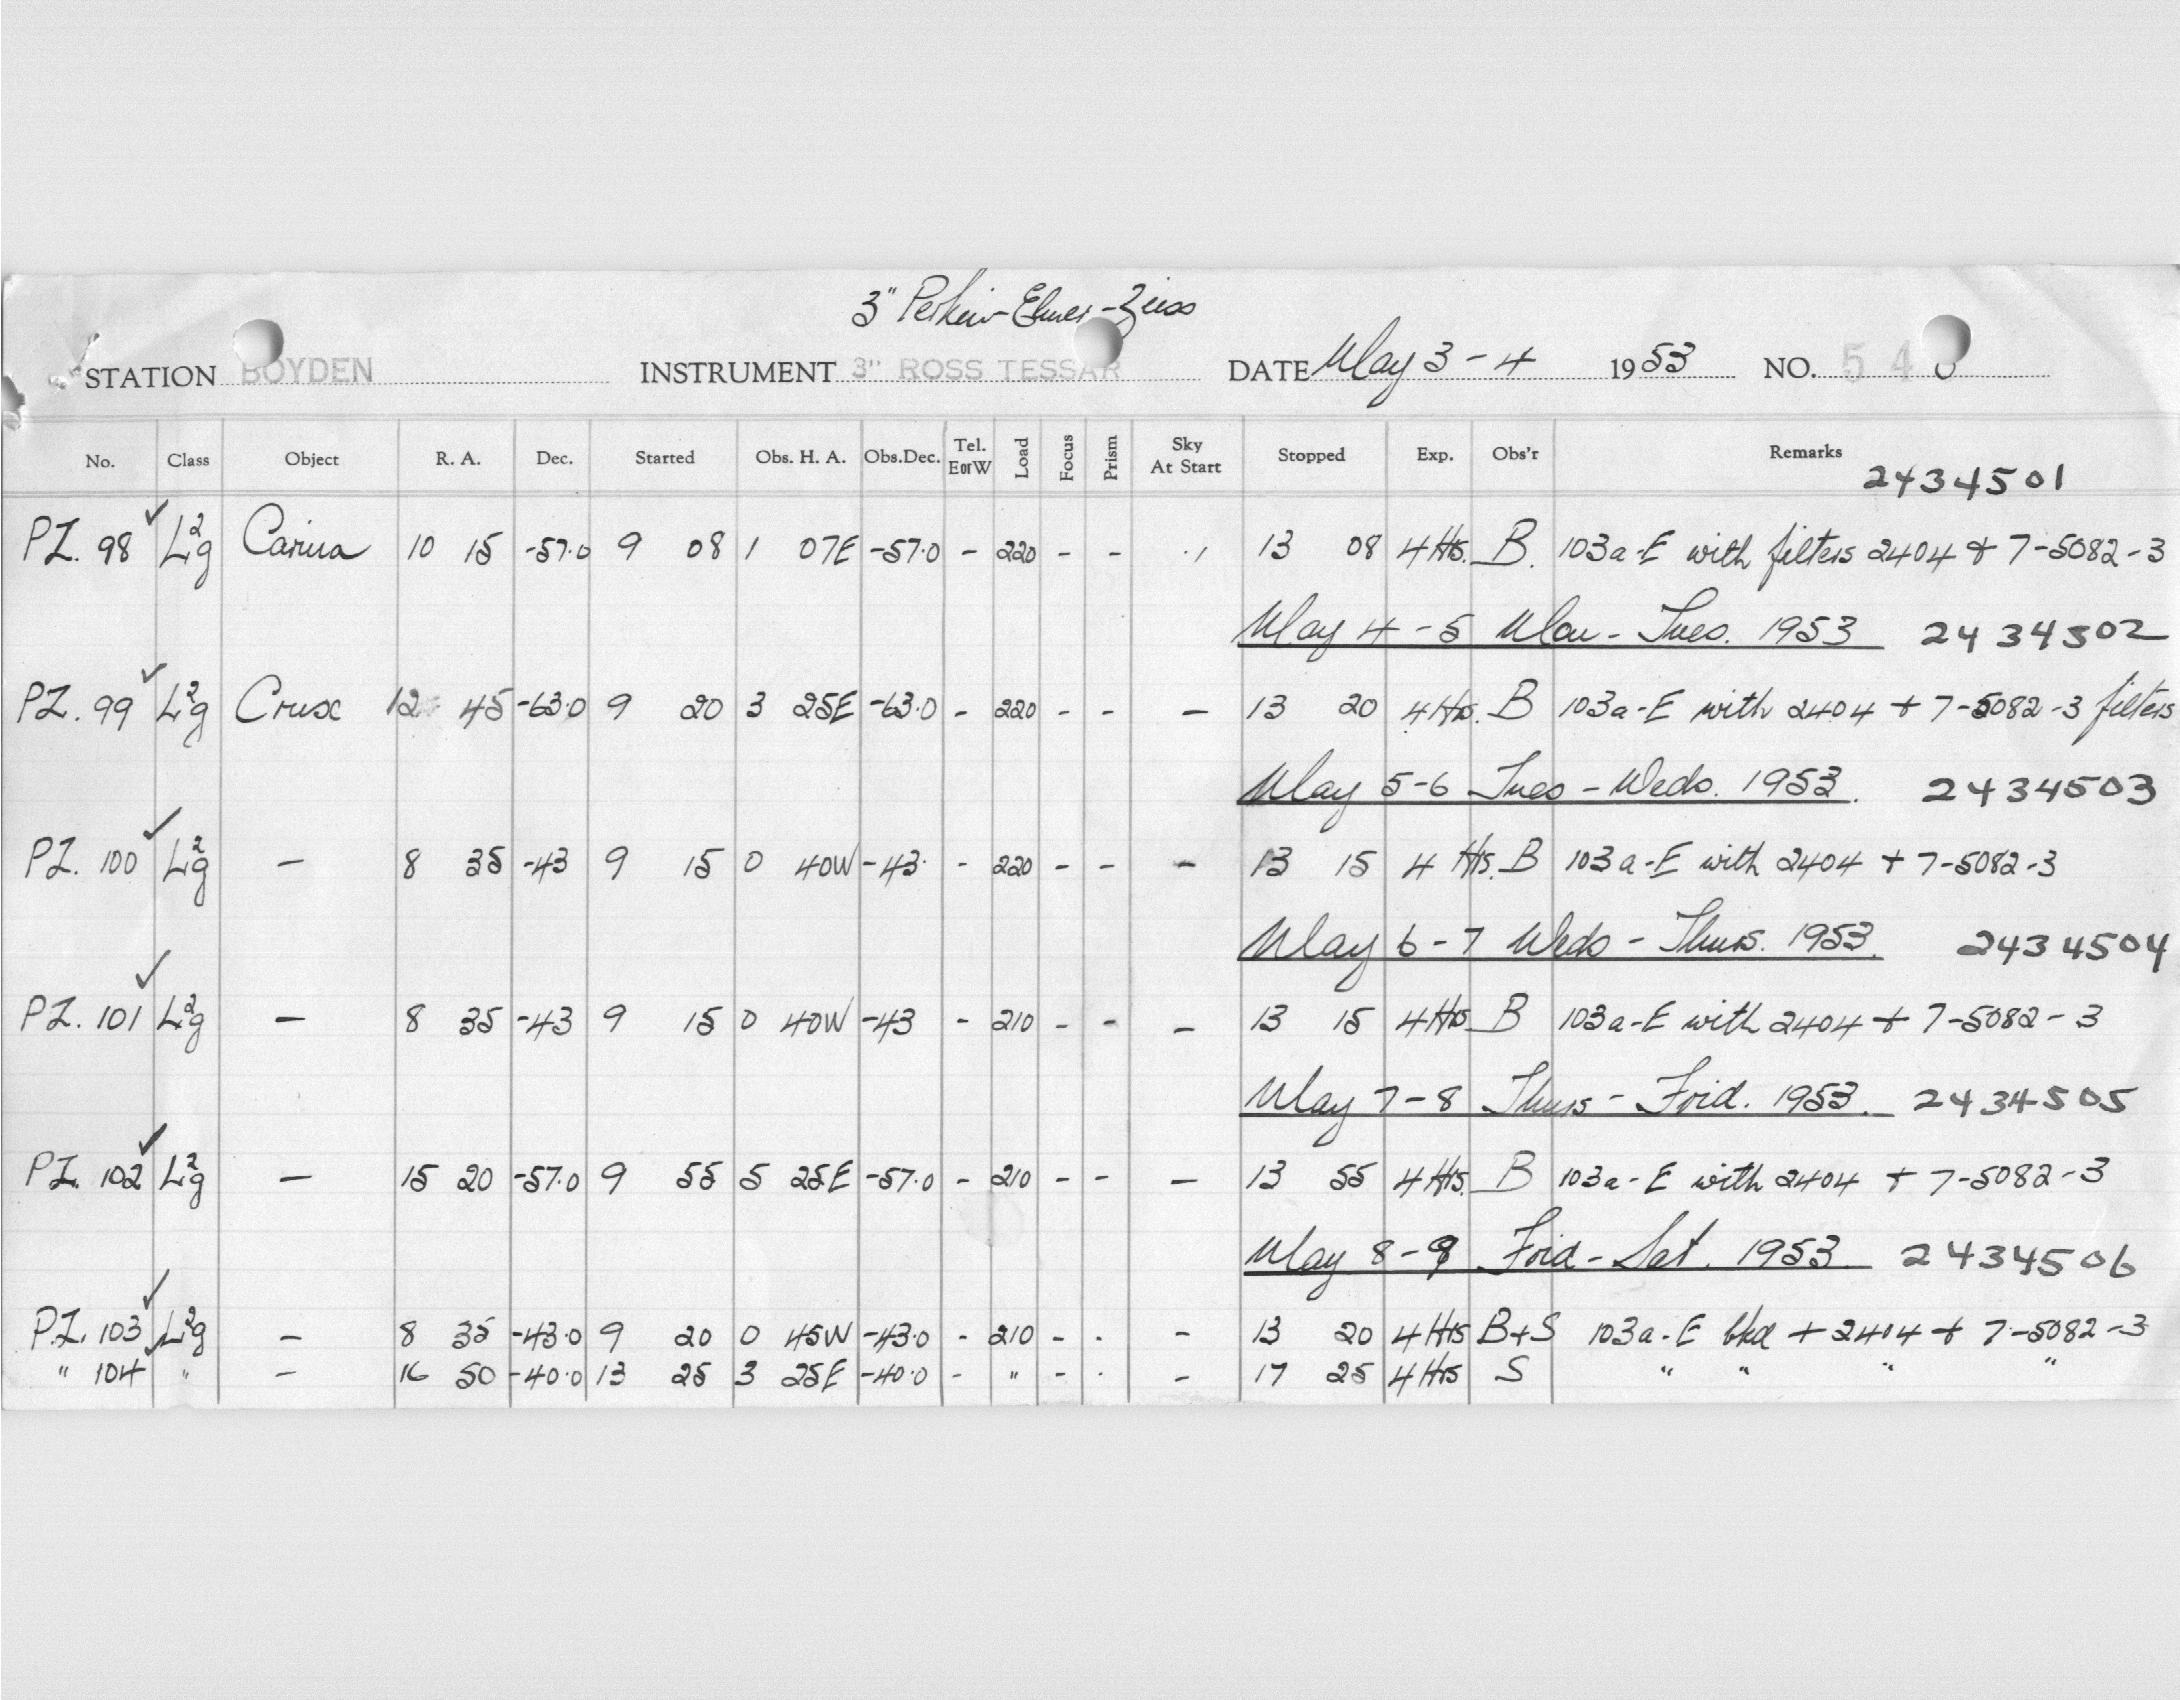 3" Perkin-Elmer-Zeiss
STATION BOYDEN INSTRUMENT 3" ROSS TESSAR DATE May 3-4 1953 NO. 54
No. Class Object R. A. Dec. Started Obs. H. A. Obs.Dec. Tel. EorW Load Focus Prism Sky At Start Stopped Exp. Obs'r Remarks
2434501
PZ. 98 ✓ L²g Carina 10 15 -57.0 9 08 1 07E -57.0 - 220 - - 13 08 4 Hrs. B. 103a-E with filters 2404 + 7-5082-3
May 4-5 Mon-Tues. 1953 2434502
PZ. 99 ✓ L²g Crux 12 45 -63.0 9 20 3 25E -63.0 - 220 - - - 13 20 4 Hrs. B 103a-E with 2404 + 7-5082-3 filters
May 5-6 Tues-Weds. 1953. 2434503
PZ. 100 ✓ L²g - 8 35 -43 9 15 0 40W -43. - 220 - - - 13 15 4 Hrs. B 103a-E with 2404 + 7-5082-3
May 6-7 Weds-Thurs. 1953. 2434504
PZ. 101 ✓ L²g - 8 35 -43 9 15 0 40W -43 - 210 - - - 13 15 4 Hrs B 103a-E with 2404 + 7-5082-3
May 7-8 Thurs-Frid. 1953. 2434505
PZ. 102 ✓ L²g - 15 20 -57.0 9 55 5 25E -57.0 - 210 - - - 13 55 4 Hrs. B 103a-E with 2404 + 7-5082-3
May 8-9 Frid-Sat. 1953. 2434506
PZ. 103 ✓ L²g - 8 35 -43.0 9 20 0 45W -43.0 - 210 - - - 13 20 4 Hrs B+S 103a-E bkd + 2404 + 7-5082-3
" 104 ✓ " - 16 50 -40.0 13 25 3 25E -40.0 - " - - - 17 25 4 Hrs S " " " "